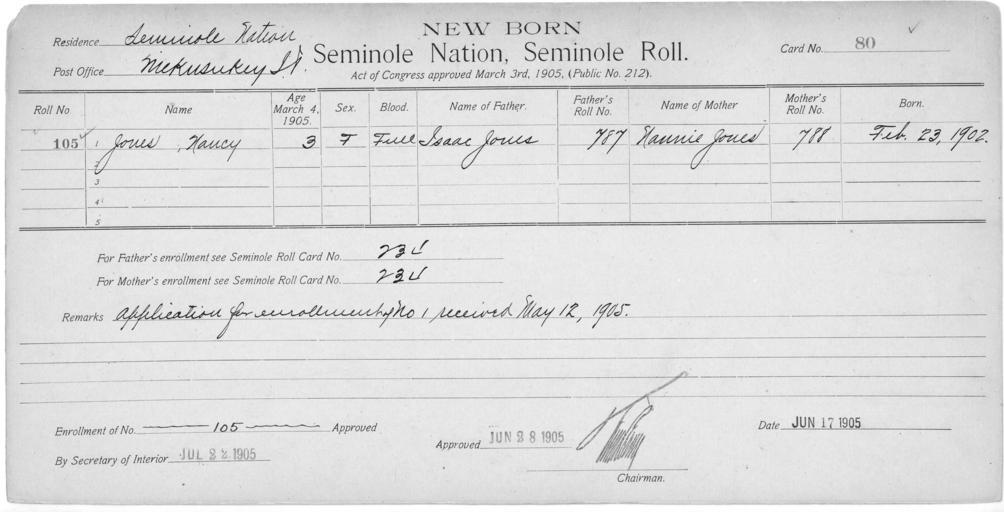 NEW BORN
Residence Seminole Nation
Seminole Nation, Seminole Roll.
Card No. 80
Post Office Mekusukey I.T.
Act of Congress approved March 3rd, 1905, (Public No. 212).
Roll No Name Age March 4, 1905. Sex. Blood. Name of Father. Father's Roll No. Name of Mother Mother's Roll No. Born.
105 1 Jones, Nancy 3 F Full Isaac Jones 787 Nannie Jones 788 Feb. 23, 1902.
2
3
4
5
For Father's enrollment see Seminole Roll Card No. 234
For Mother's enrollment see Seminole Roll Card No. 234
Remarks application for enrollment of No 1 received May 12, 1905.
Enrollment of No. 105 Approved
Date JUN 17 1905
Approved JUN 28 1905
By Secretary of Interior JUL 22 1905
Chairman.